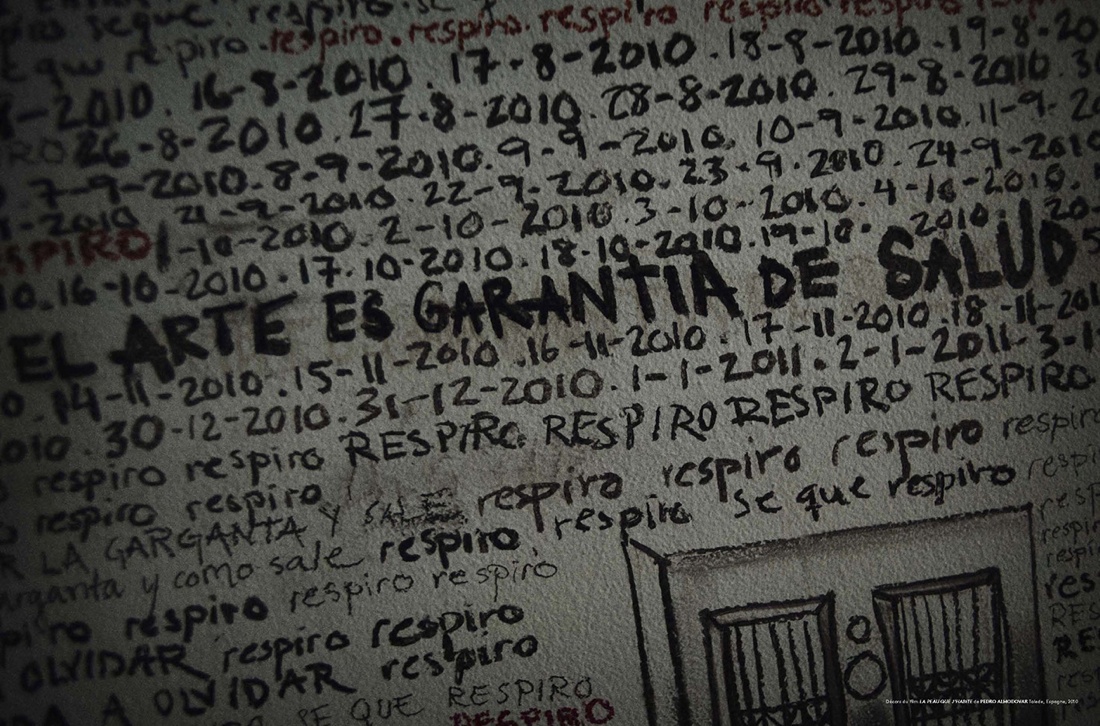 respiro se
segue.
respiro. respiro. respiro. respiro respiro
16-8-2010. 17-8-2010. 18-8-2010. 19-8-20
-2010.
26-8-2010. 27-8-2010. 28-8-2010. 29-8-2010.
7-9-2010. 8-9-2010. 9-9-2010. 10-9-2010. 11-9-
-2010 21-9-2010. 22-9-2010. 23-9-2010. 24-9-2010
ESPIRO 1-10-2010. 2-10-2010. 3-10-2010. 4-10-2010.
10. 16-10-2010. 17-10-2010. 18-10-2010. 19-10-2010.
EL ARTE ES GARANTIA DE SALUD
0. 14-11-2010. 15-11-2010. 16-11-2010. 17-11-2010. 18-11-201
2010. 30-12-2010. 31-12-2010. 1-1-2011. 2-1-2011. 3-1-
respiro respiro RESPIRO RESPIRO RESPIRO RESPIRO
respiro respiro respiro respiro respiro respiro
R LA GARGANTA Y SALE respiro se que respiro
arganta y como sale respiro.
respiro respiro respiro
OLVIDAR respiro respiro
A OLVIDAR respiro
QUE RESPIRO
RESPIRO
Décors du film LA PEAU QUE J'HABITE de PEDRO ALMODOVAR Tolède, Espagne, 2010